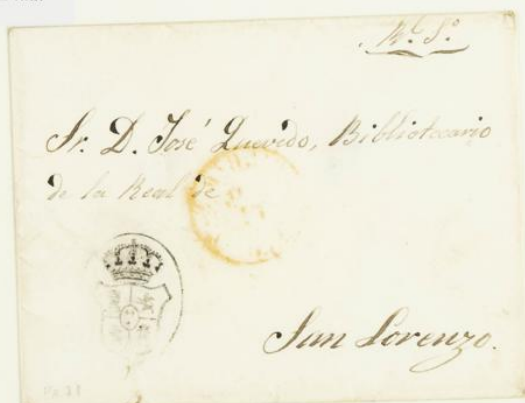 Rl. So.
Sr. D. José Quevedo, Bibliotecario
de la Real de
San Lorenzo.